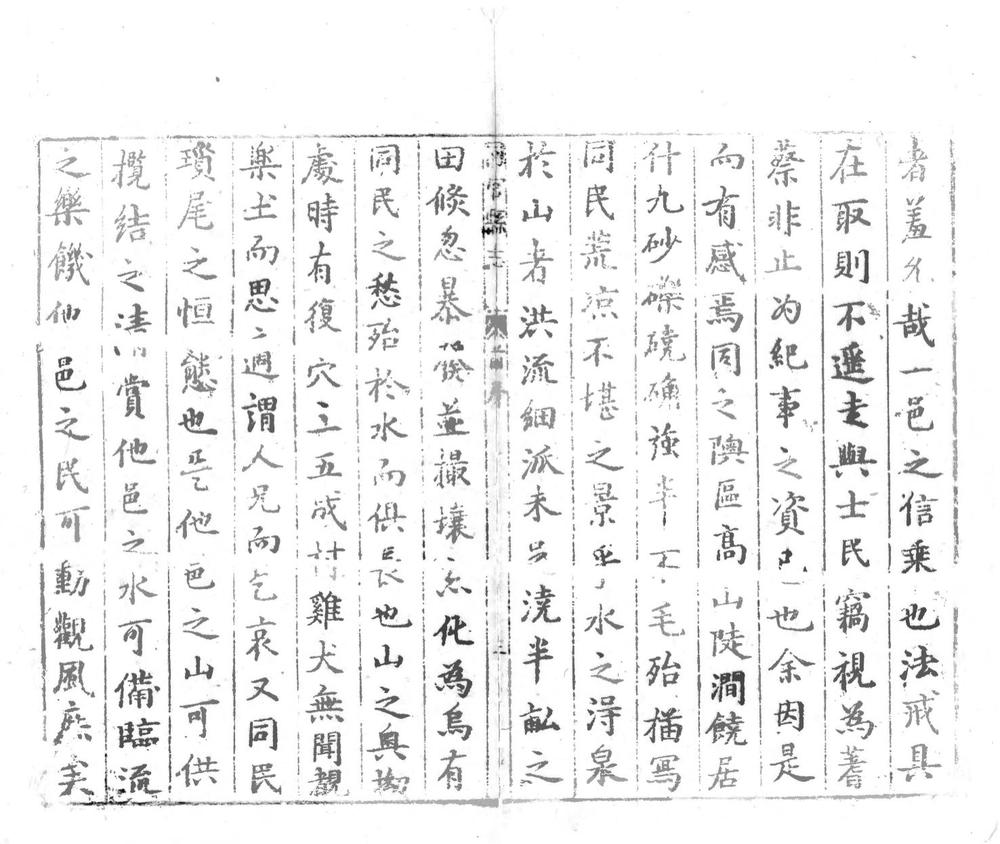 者羞允哉一邑之信乘也法戒具
在取則不遥走與士民竊視為蓍
蔡非止为紀事之資已也余因是
而有感焉同之隩區髙山陡澗饒居
什九砂礫磽确強半不毛殆猶寫
同民荒凉不堪之景乎水之淂泉
於山者洪流細派未足澆半畝之
同官縣志 卷首序 三
田倐忽暴漲並撮壤亦化為烏有
同民之愁殆於水而俱長也山之奥
處時有復穴三五成村雞犬無聞覩
樂土而思〻謂人兄而乞哀又同民
瑣尾之恒態也是他邑之山可供
攬結之清賞他邑之水可備臨流
之樂饑他邑之民可動觀風